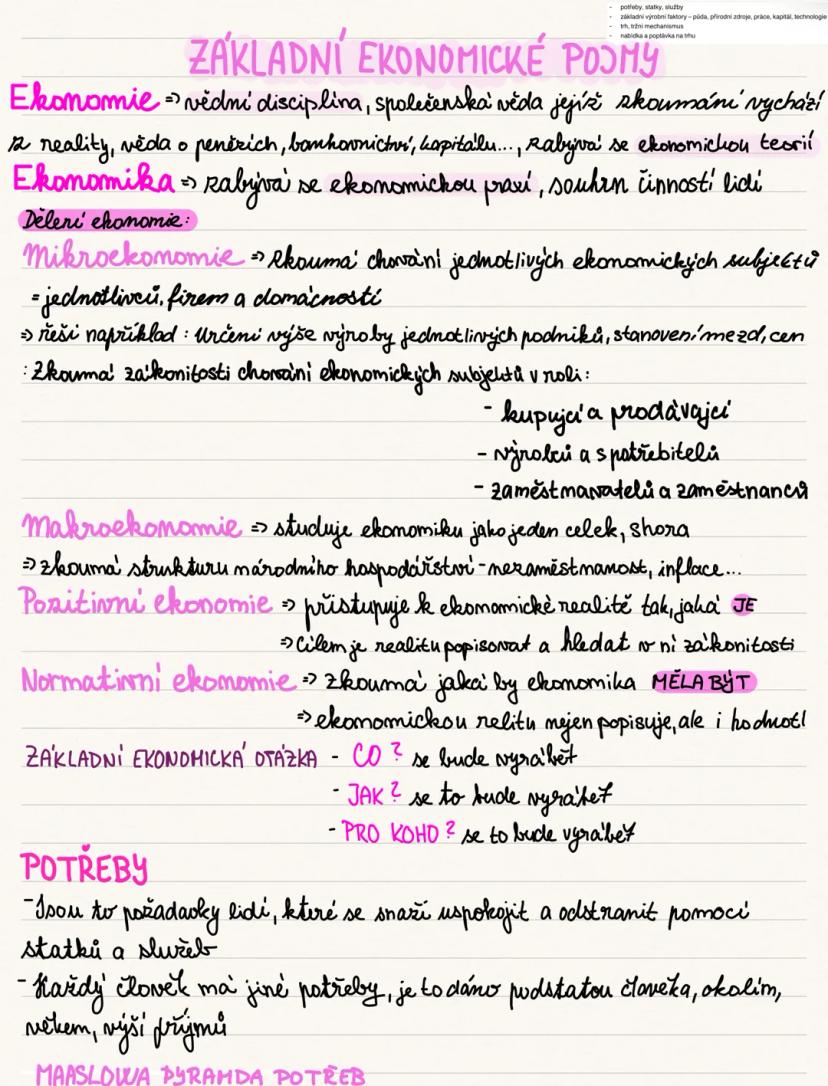 - potřeby, statky, služby
- základní výrobní faktory – půda, přírodní zdroje, práce, kapitál, technologie
- trh, tržní mechanismus
- nabídka a poptávka na trhu
ZÁKLADNÍ EKONOMICKÉ POJMY
Ekonomie => vědní disciplína, společenská věda jejíž zkoumání vychází
z reality, věda o penězích, bankovnictví, kapitálu..., zabývá se ekonomickou teorií
Ekonomika => zabývá se ekonomickou praxí, souhrn činností lidí
Dělení ekonomie:
Mikroekonomie => zkoumá chování jednotlivých ekonomických subjektů
= jednotlivců, firem a domácností
=> řeší například: Určení výše výroby jednotlivých podniků, stanovení mezd, cen
: Zkoumá zákonitosti chování ekonomických subjektů v roli:
- kupující a prodávající
- výrobců a spotřebitelů
- zaměstnavatelů a zaměstnanců
Makroekonomie => studuje ekonomiku jako jeden celek, shora
=> zkoumá strukturu národního hospodářství - nezaměstnanost, inflace...
Pozitivní ekonomie => přistupuje k ekonomické realitě tak, jaká JE
=> Cílem je realitu popisovat a hledat v ní zákonitosti
Normativní ekonomie => zkoumá jaká by ekonomika MĚLA BÝT
=> ekonomickou relitu nejen popisuje, ale i hodnotí
ZÁKLADNÍ EKONOMICKÁ OTÁZKA - CO? se bude vyrábět
- JAK? se to bude vyrábět
- PRO KOHO? se to bude vyrábět
POTŘEBY
- Jsou to požadavky lidí, které se snaží uspokojit a odstranit pomocí
statků a služeb
- Každý člověk má jiné potřeby, je to dáno podstatou člověka, okolím,
věkem, výší příjmů
MAASLOWA PYRAMDA POTŘEB